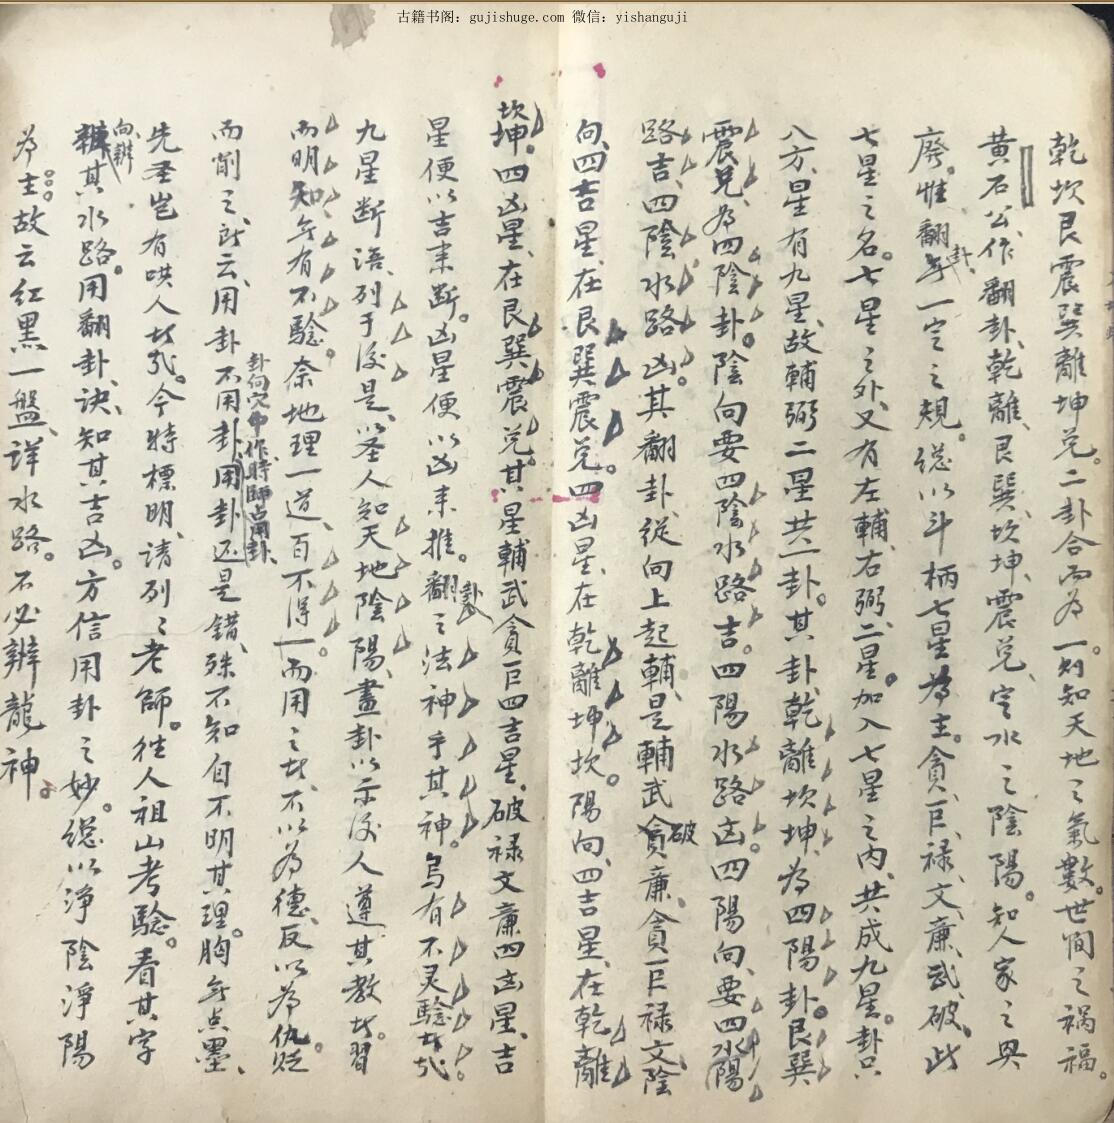 古籍书阁：gujishuge.com 微信：yishanguji
乾坎艮震巽離坤兑。二卦合而為一。则知天地之氣數。世间之禍福。
黄石公、作翻卦、乾離、艮巽、坎坤、震兑、定水之陰陽。知人家之興
廃。惟翻卦、一定之規。緫以斗柄七星為主。貪、巨、禄、文、廉、武、破、此
七星之名。七星之外、又有左輔、右弼、二星。加入七星之内、共成九星。卦只
八方、星有九星、故輔弼二星共一卦。其卦、乾離坎坤、為四陽卦。艮巽
震兑、為四陰卦。陰向要四陰水路吉。四陽水路凶。四陽向、要四陽水
路吉、四陰水路凶。其翻卦、從向上起輔、是輔武破廉。貪巨禄文、陰
向、四吉星、在艮巽震兑。四凶星、在乾離坤坎。陽向、四吉星、在乾離
坎坤。四凶星、在艮巽震兑。其星輔武貪巨四吉星、破禄文廉四凶星、吉
星便以吉来断。凶星便以凶来推。翻卦之法神乎其神。烏有不灵驗者哉。
九星断语、列于後是、以圣人知天地陰陽、畫卦以示後人遵其教者。習
而明知、无有不驗。奈地理一道、百不得一。而用之者、不以為德、反以為仇贬
而削之、既云、用卦不用卦、用卦还是錯、殊不知自不明其理。胸无点墨、
卦向穴中作、時師占用卦、
先圣岂有哄人者哉。今特標明、请列〻老師。往人祖山考驗。看其字
向、辦其水路。用翻卦、诀、知其吉凶。方信用卦之妙。緫以淨陰淨陽
為主。故云红黑一盤、详水路。不必辦龍神。